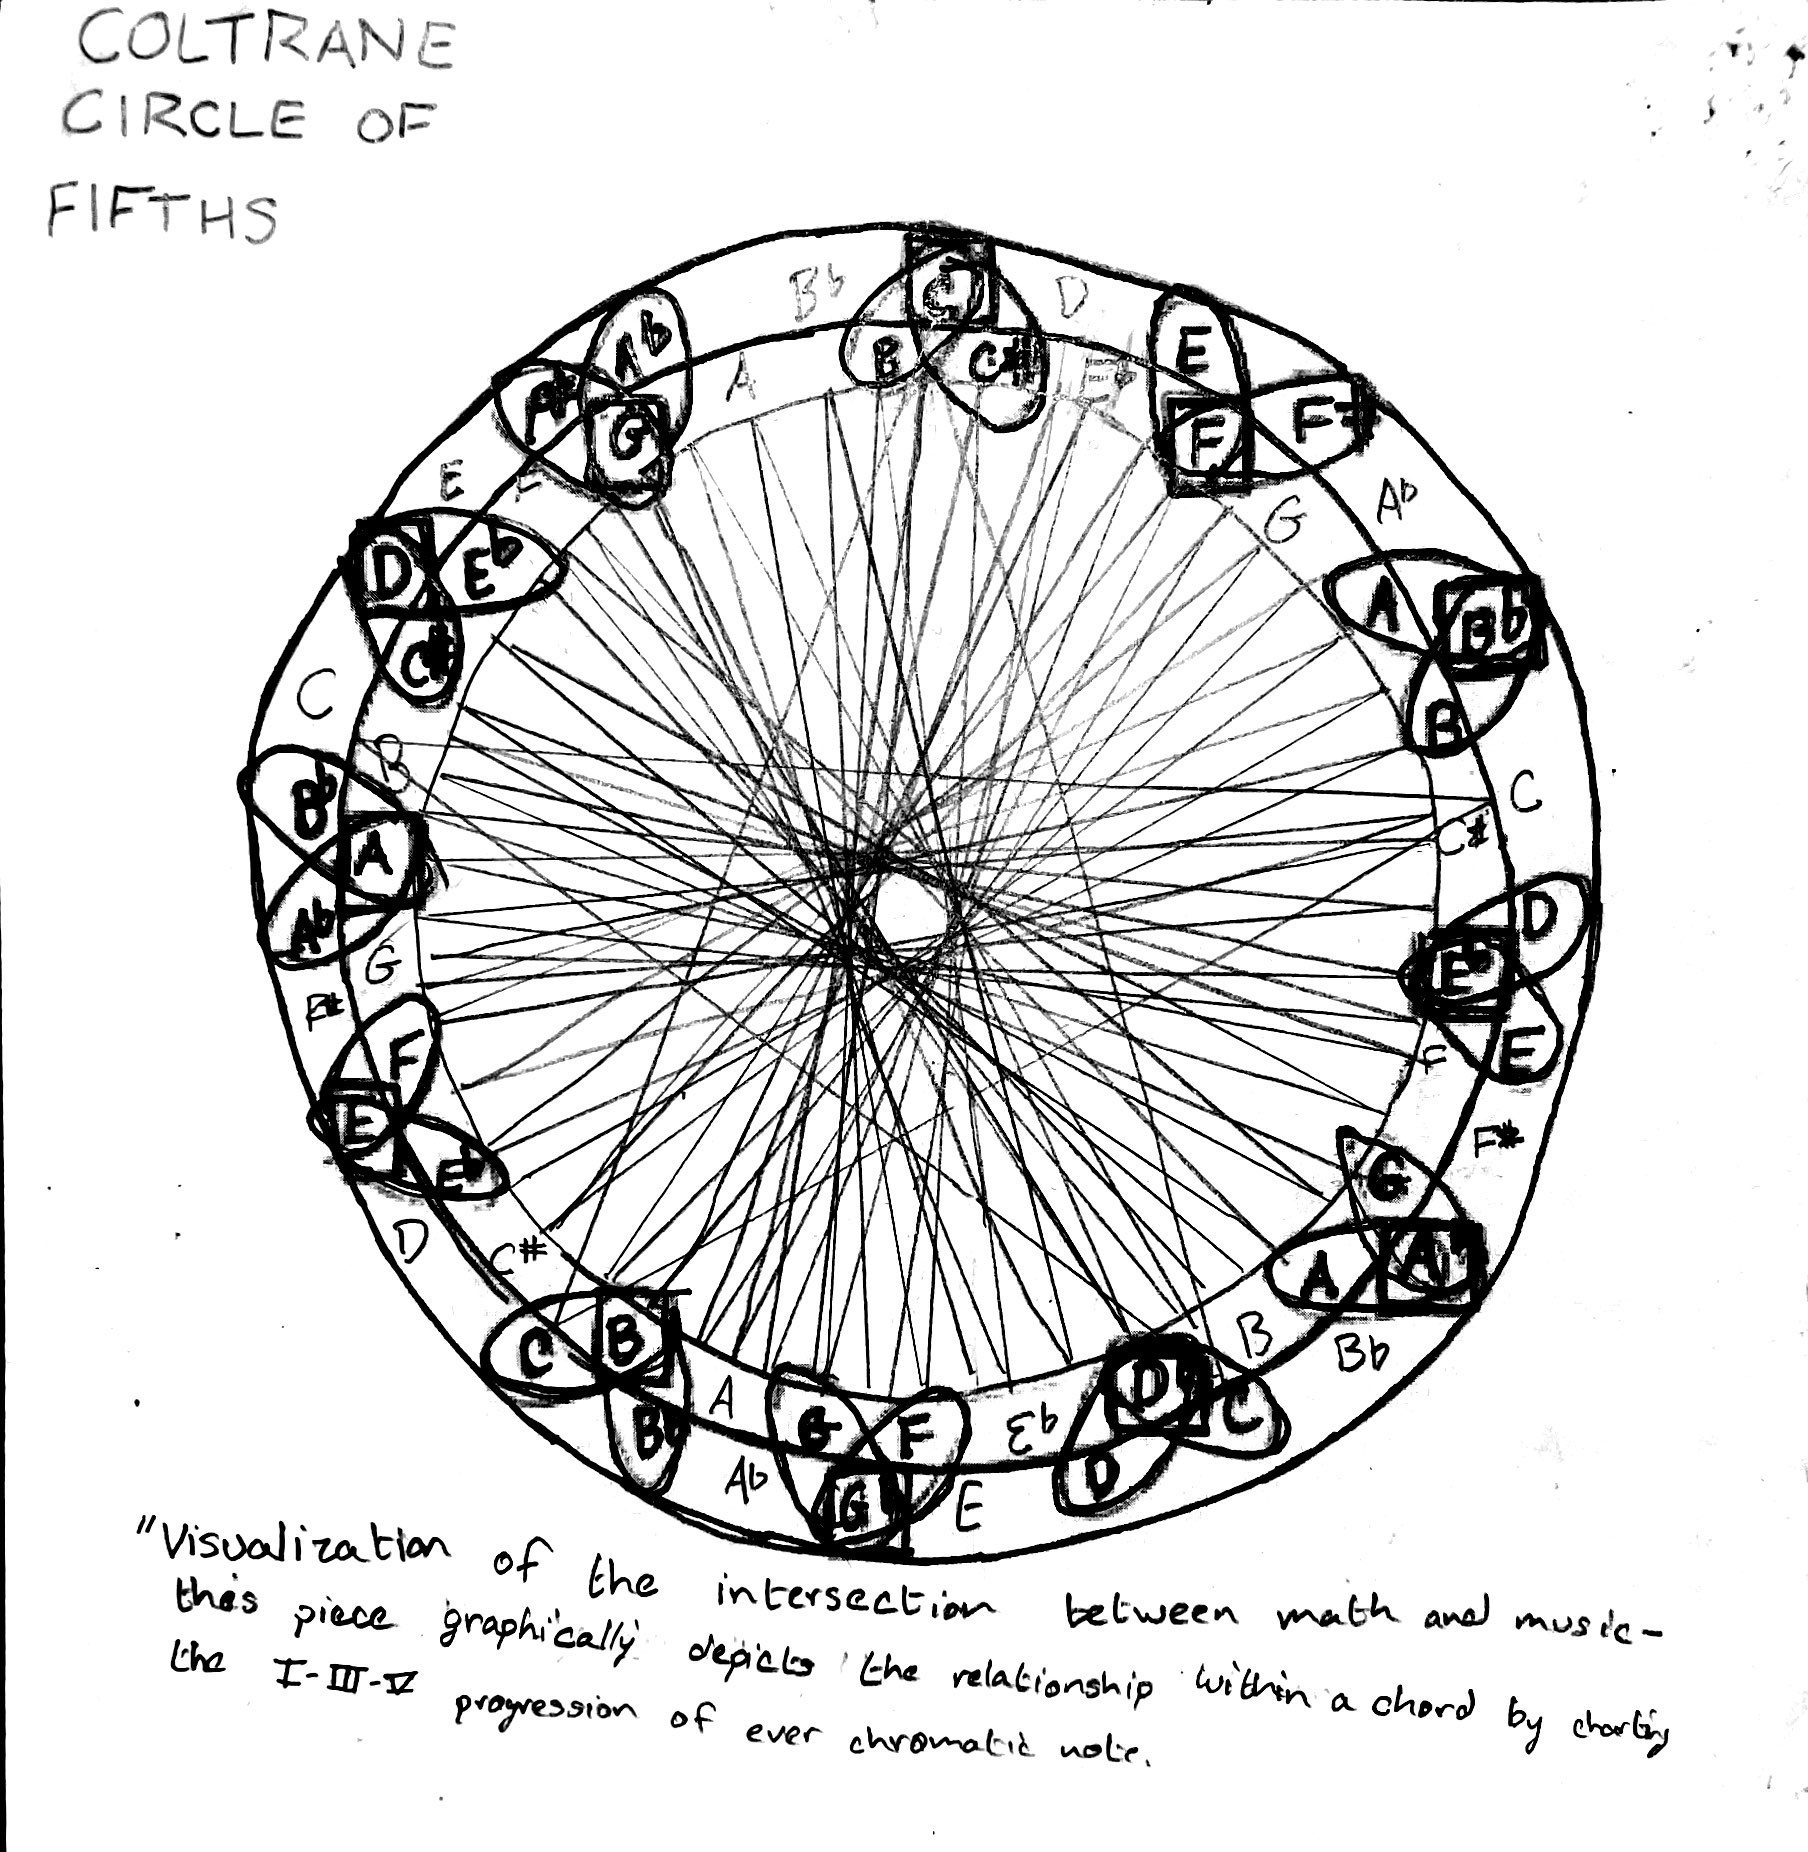 COLTRANE
CIRCLE OF
FIFTHS
C
B
C#
D
Eb
E
F
F#
G
Ab
A
Bb
B
C
C#
D
Eb
E
F
F#
G
Ab
A
Bb
B
C
Db
D
Eb
E
F
G
G
Ab
A
Bb
B
C
C#
D
Eb
E
F
F#
G
Ab
A
Bb
B
C
C#
D
Eb
E
F
G
Ab
A
Bb
"Visualization of the intersection between math and music-
this piece graphically depicts the relationship within a chord by charting
the I-III-V progression of ever chromatic note.